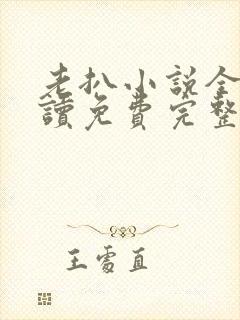 老扒小说全
讀免費完整
王雾直